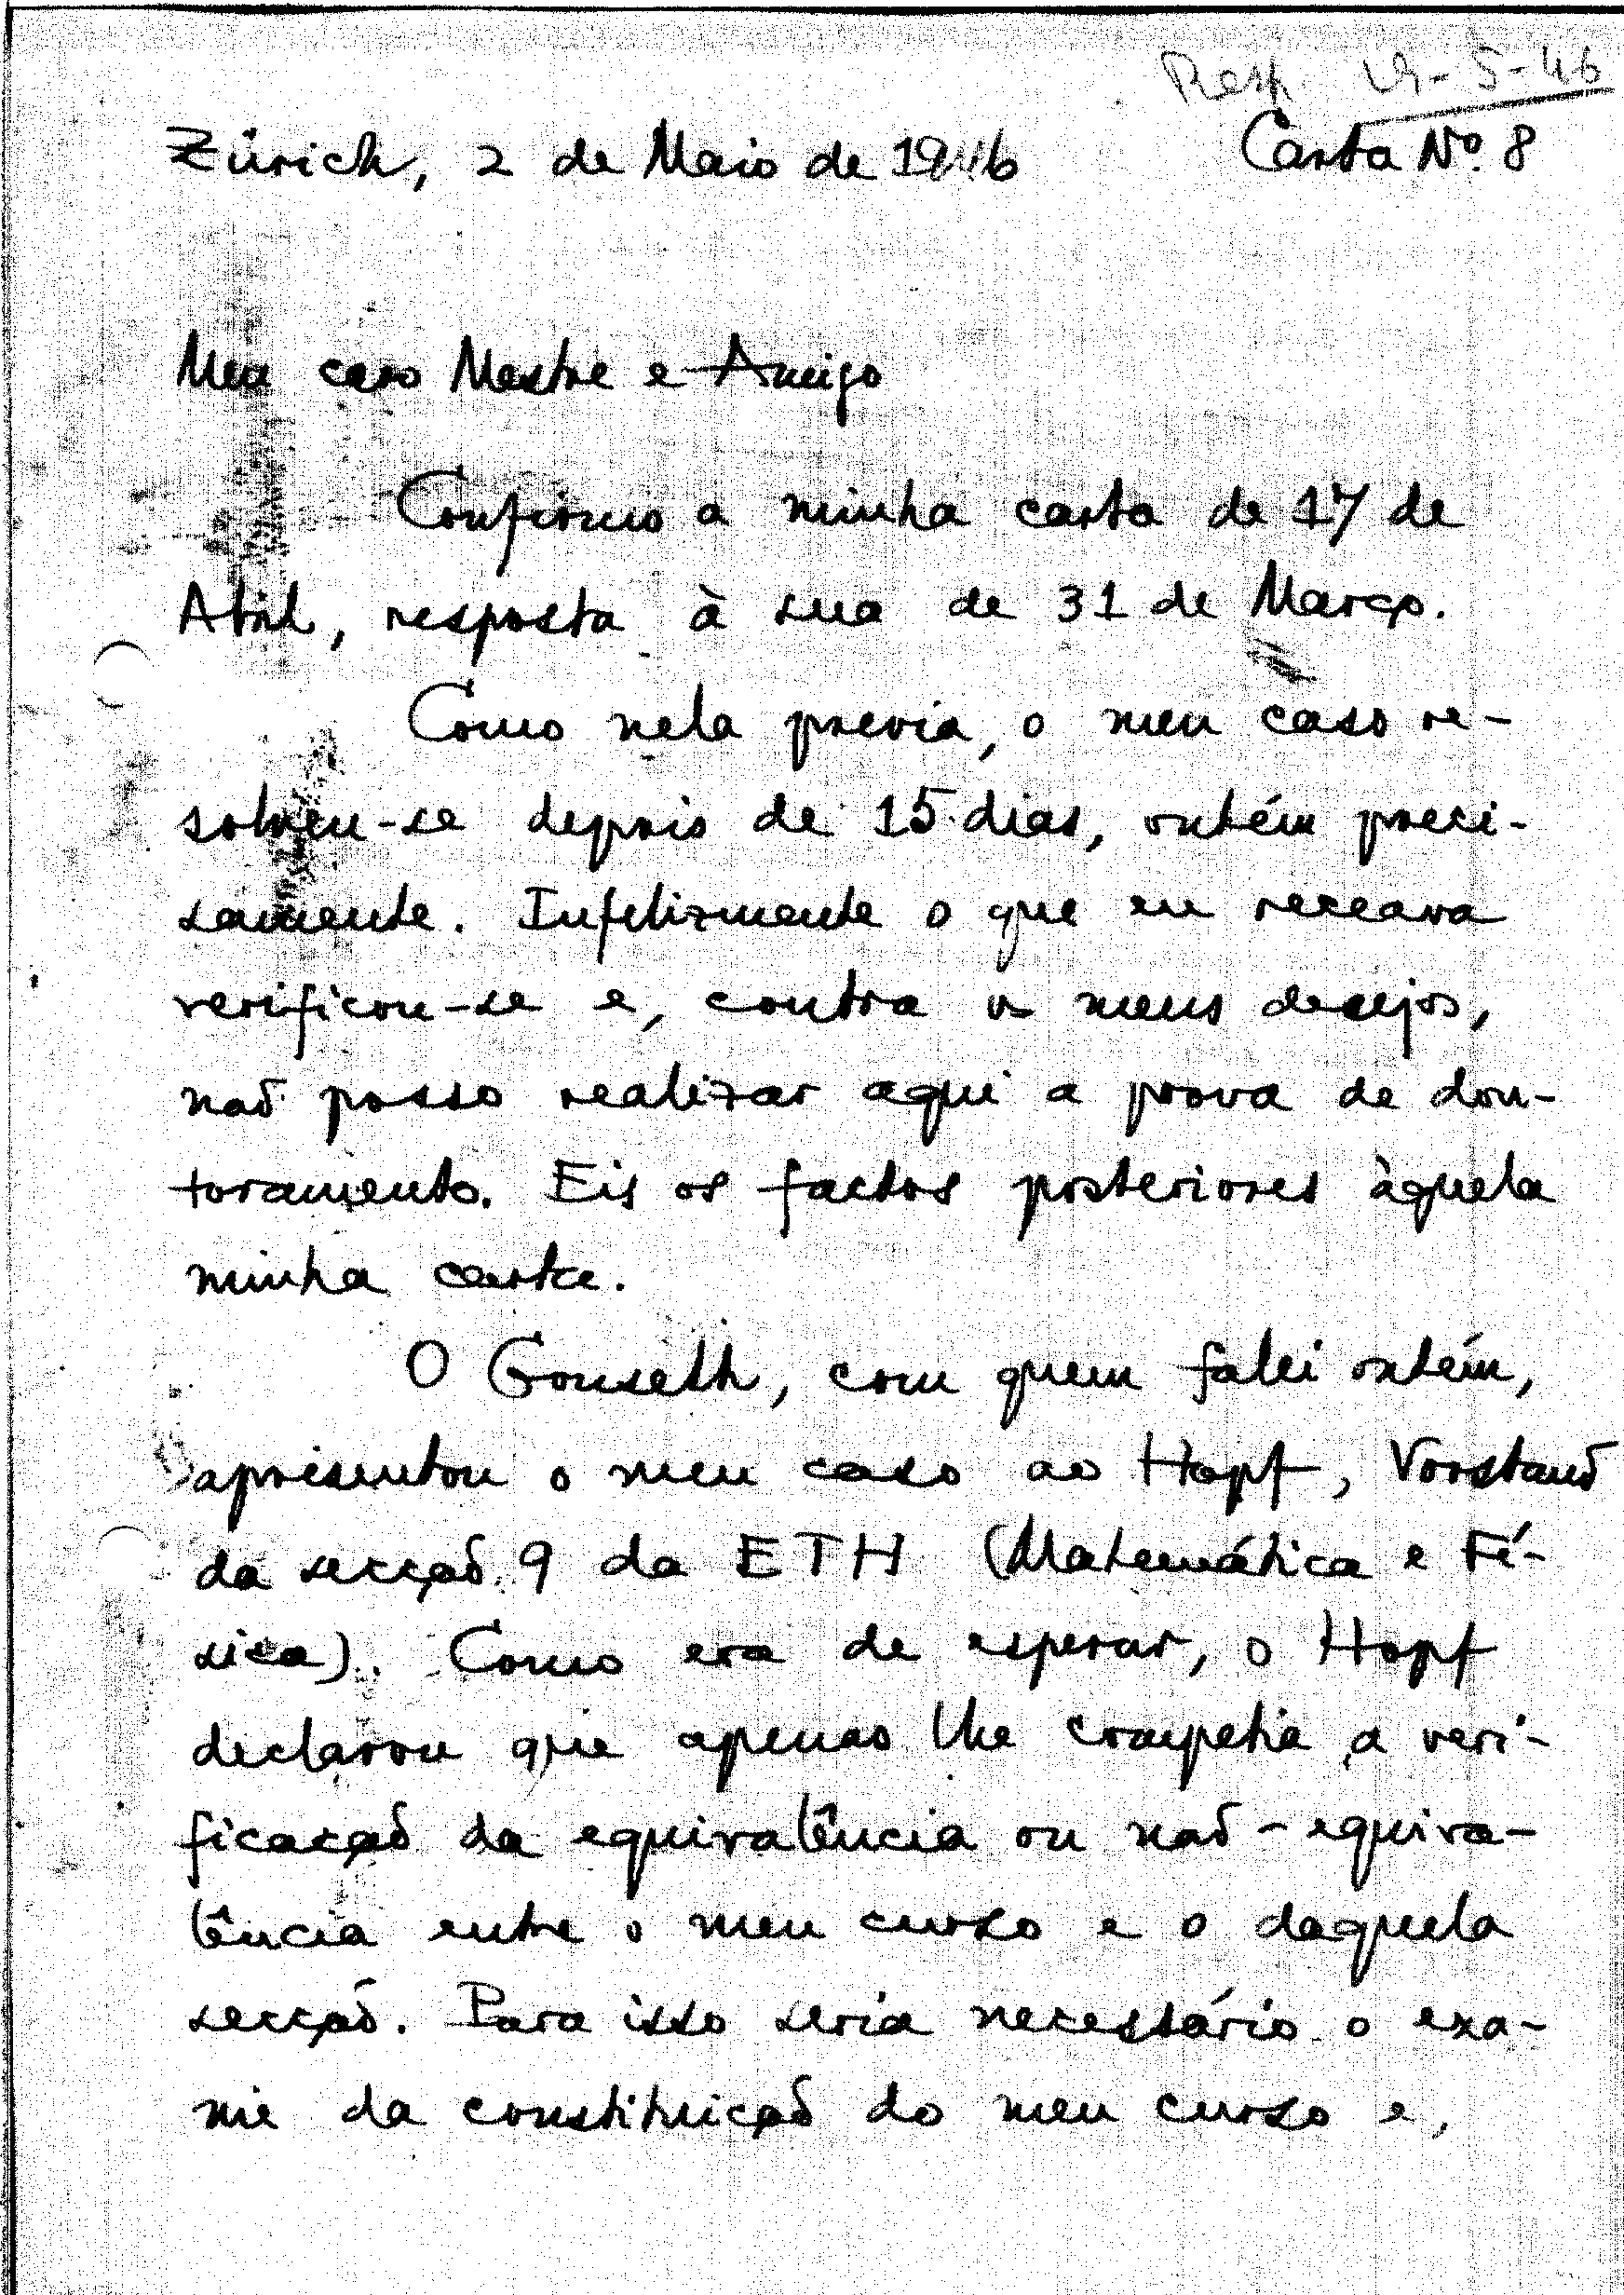 Resp. 19-5-46
Zürich, 2 de Maio de 1946 Carta Nº. 8
Meu caro Mestre e Amigo
Confirmo a minha carta de 17 de
Abril, resposta à sua de 31 de Março.
Como nela previa, o meu caso re-
solveu-se depois de 15 dias, ontém preci-
samente. Infelizmente o que eu receava
verificou-se e, contra os meus desejos,
não posso realizar aqui a prova de dou-
toramento. Eis os factos posteriores àquela
minha carta.
O Gonseth, com quem falei ontém,
apresentou o meu caso ao Hopf, Vorstand
da secção 9 da ETH (Matemática e Fí-
sica). Como era de esperar, o Hopf
declarou que apenas lhe competia a veri-
ficação da equivalência ou não-equiva-
lência entre o meu curso e o daquela
secção. Para isso seria necessário o exa-
me da constituição do meu curso e,